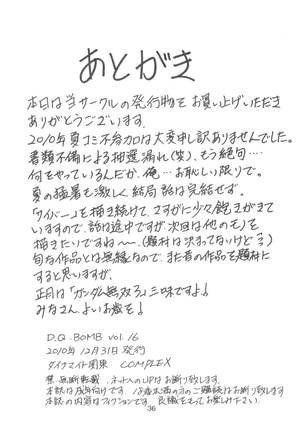 あとがき
本日は当サークルの発行物をお買い上げいただき
ありがとうございます。
2010年夏コミ不参加は大変申し訳ありませんでした。
書類不備による抽選漏れ(笑)、もう絶句‥‥
何をやっているんだか、俺…お恥しい限りで。
夏の猛暑も激しく、結局話は完結せず。
「サイバー」を描き続けて、さすがに少々飽きがきて
いますので、話は途中ですが、次回は他のモノを
描きたいですね〜。(題材は決まってないけど
旬な作品とは無縁なので、また昔の作品を題材に
すると思いますが。
正月は「ガンダム無双3」三昧ですよ♪
みなさん、よいお歳を♪
D.Q.BOMB vol.16
2010年12月31日発行
ダイナマイト関東 COMPLEX
禁・無断転載 ネットへのUPはお断り致します。
本誌は成年向けです。18歳未満の方のご購読はお断り致します
本誌の内容はフィクションです。良識をもってお楽しみ下さい。
36